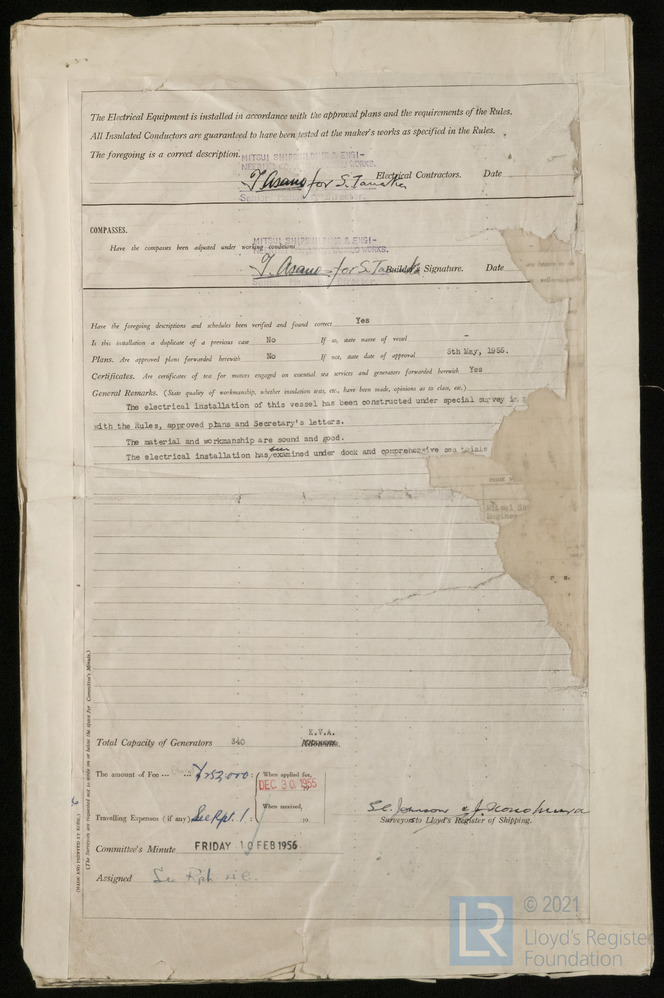 The Electrical Equipment is installed in accordance with the approved plans and the requirements of the Rules.
All Insulated Conductors are guaranteed to have been tested at the maker's works as specified in the Rules.
The foregoing is a correct description.
MITSUI SHIPBUILDING & ENGI-
T. Asano for S. Tanaka Electrical Contractors. Date
COMPASSES.
Have the compasses been adjusted under working conditions
MITSUI SHIPBUILDING & ENGI-
WORKS.
T. Asano for S. Tanaka Builder's Signature. Date
Have the foregoing descriptions and schedules been verified and found correct Yes
Is this installation a duplicate of a previous case No If so, state name of vessel –
Plans. Are approved plans forwarded herewith No If not, state date of approval 5th May, 1955.
Certificates. Are certificates of test for motors engaged on essential sea services and generators forwarded herewith Yes
General Remarks. (State quality of workmanship, whether insulation tests, etc., have been made, opinions as to class, etc.)
The electrical installation of this vessel has been constructed under special survey in
with the Rules, approved plans and Secretary's letters.
The material and workmanship are sound and good.
The electrical installation has been examined under dock and comprehensive sea trials
Total Capacity of Generators 340 K.V.A.
The amount of Fee ... ... ¥252,000 : When applied for,
DEC 30 1955
Travelling Expenses (if any) See Rpt. 1. : When received,
19
Surveyors to Lloyd's Register of Shipping.
Committee's Minute FRIDAY 10 FEB 1956
Assigned See Rpt
(The Surveyors are requested not to write on or below the space for Committee's Minute.)
(MADE AND PRINTED IN ENGLAND)
LR © 2021
Lloyd's Register
Foundation